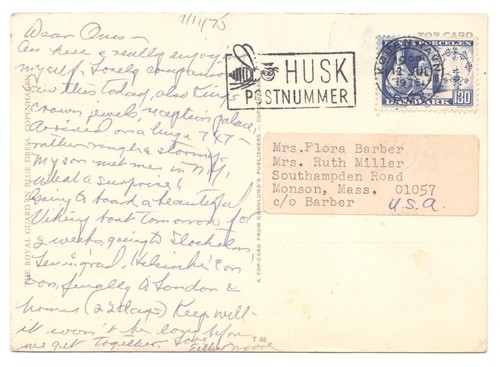 7/11/75
Dear Ones -
Am here & really enjoying
myself, lovely companion
saw this today, also King's
crown jewels, reception palace,
Arrived on a huge 747 -
rather rough & stormy -
my son met me in N.Y.,
what a surprise!
Going to board a beautiful
Viking boat tomorrow for
2 weeks, going to Stockholm
Leningrad, Helsinki & on
on, finally to London &
home. (22 days) Keep well -
it won't be long before
we get together. Love,
Esther Moore
THE ROYAL GUARD IN BLUE DRESS, COPENHAGEN
A TOP-CARD FROM GRØNLUND'S PUBLISHERS
T 46
TOP-CARD
HUSK
POSTNUMMER
KØBENHAVN
12 JUL
PORCELÆN
DANMARK 130
Mrs.Flora Barber
Mrs. Ruth Miller
Southampden Road
Monson, Mass. 01057
c/o Barber
U.S.A.